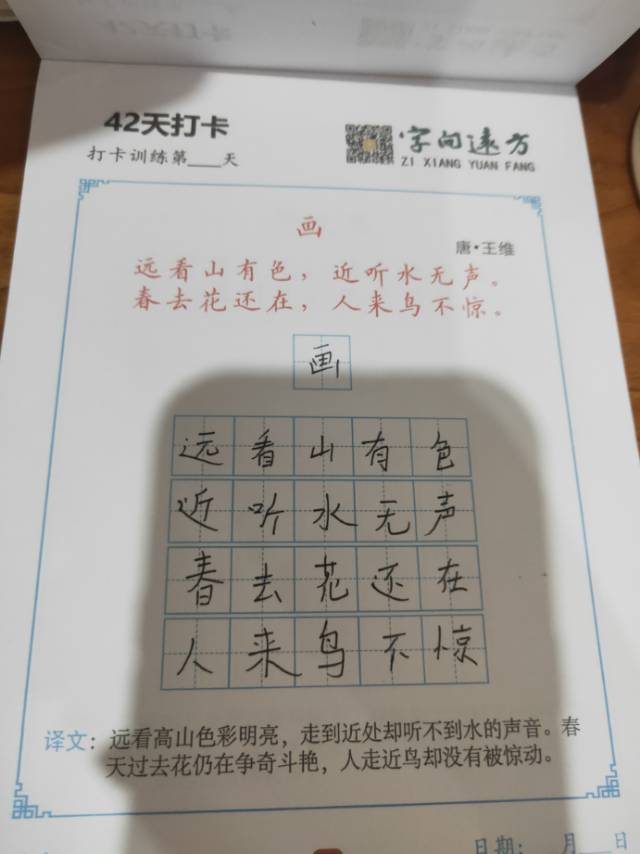 42天打卡
打卡训练第___天
字向远方
ZI XIANG YUAN FANG
画
唐·王维
远看山有色，近听水无声。
春去花还在，人来鸟不惊。
画
远看山有色
近听水无声
春去花还在
人来鸟不惊
译文：远看高山色彩明亮，走到近处却听不到水的声音。春
天过去花仍在争奇斗艳，人走近鸟却没有被惊动。
日期：___月___日